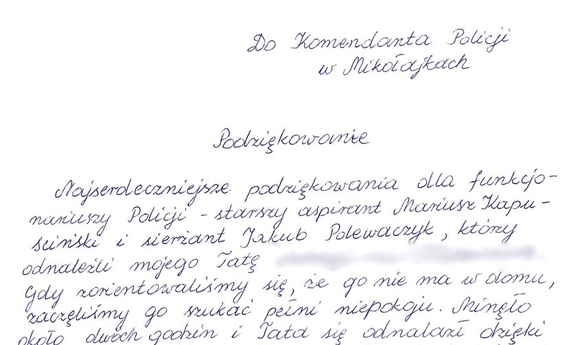 Do Komendanta Policji
w Mikołajkach
Podziękowanie
Najserdeczniejsze podziękowania dla funkcjo-
nariuszy Policji - starszy aspirant Mariusz Kapu-
ściński i sierżant Jakub Polewaczyk, który
odnaleźli mojego Tatę
Gdy zorientowaliśmy się, że go nie ma w domu,
zaczęliśmy go szukać pełni niepokoju. Minęło
około dwóch godzin i Tata się odnalazł dzięki